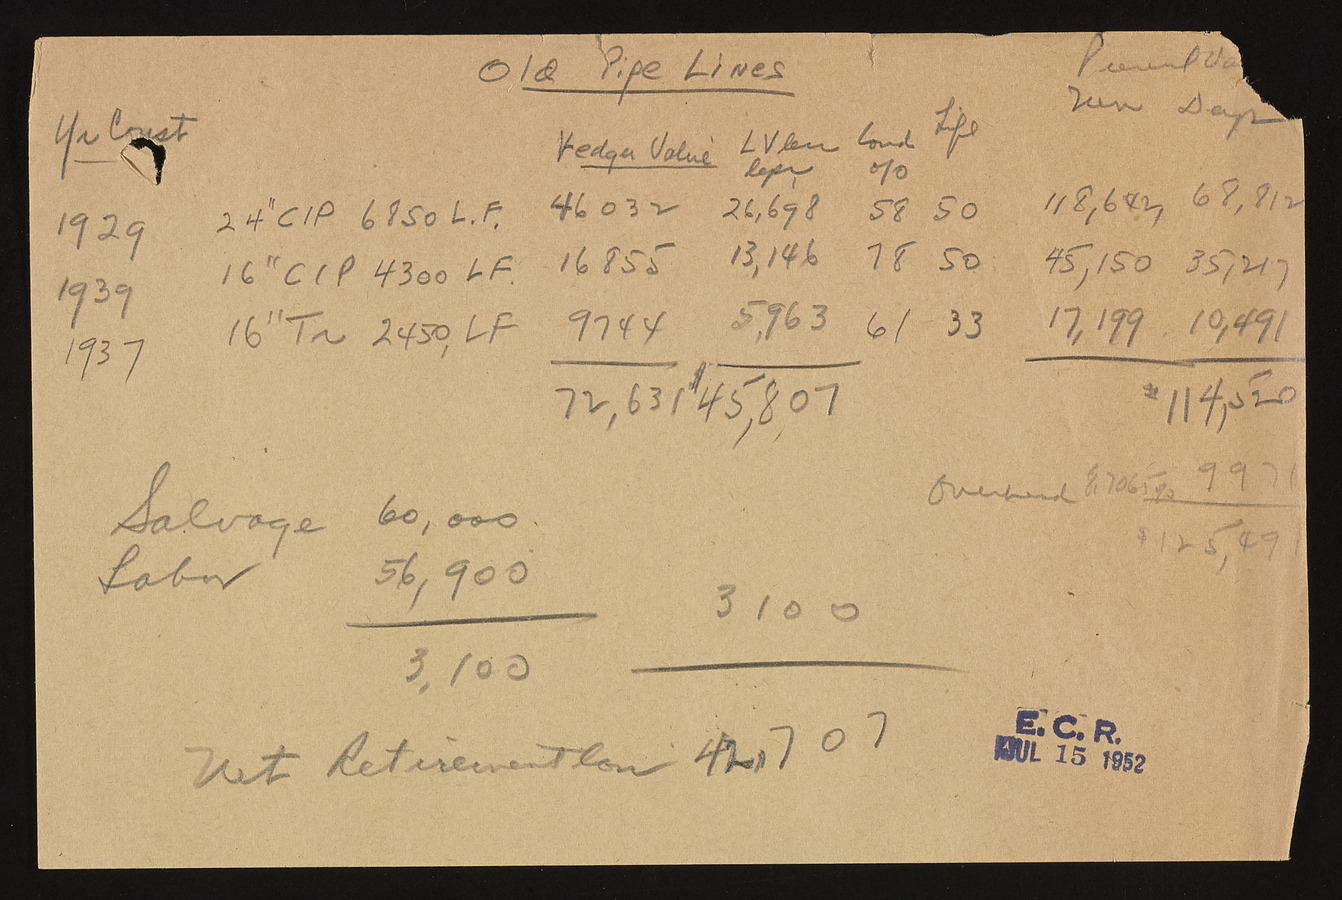 Old Pipe Lines
Present Va
New Depr
Yr Const
Ledger Value LV less Cond Life
Depr. o/o
1929 24" CIP 6850 L.F. 46032 26,698 58 50 118,642 68,812
1939 16" CIP 4300 LF. 16855 13,146 78 50 45,150 35,217
1937 16" Tr 2450, LF 9744 5,963 61 33 17,199 10,491
72,631 $45,807 $114,520
Overhead 8.7065% 9971
$125,491
Salvage 60,000
Labor 56,900
3100
3,100
Net Retirement loss 42,707
E. C. R.
JUL 15 1952